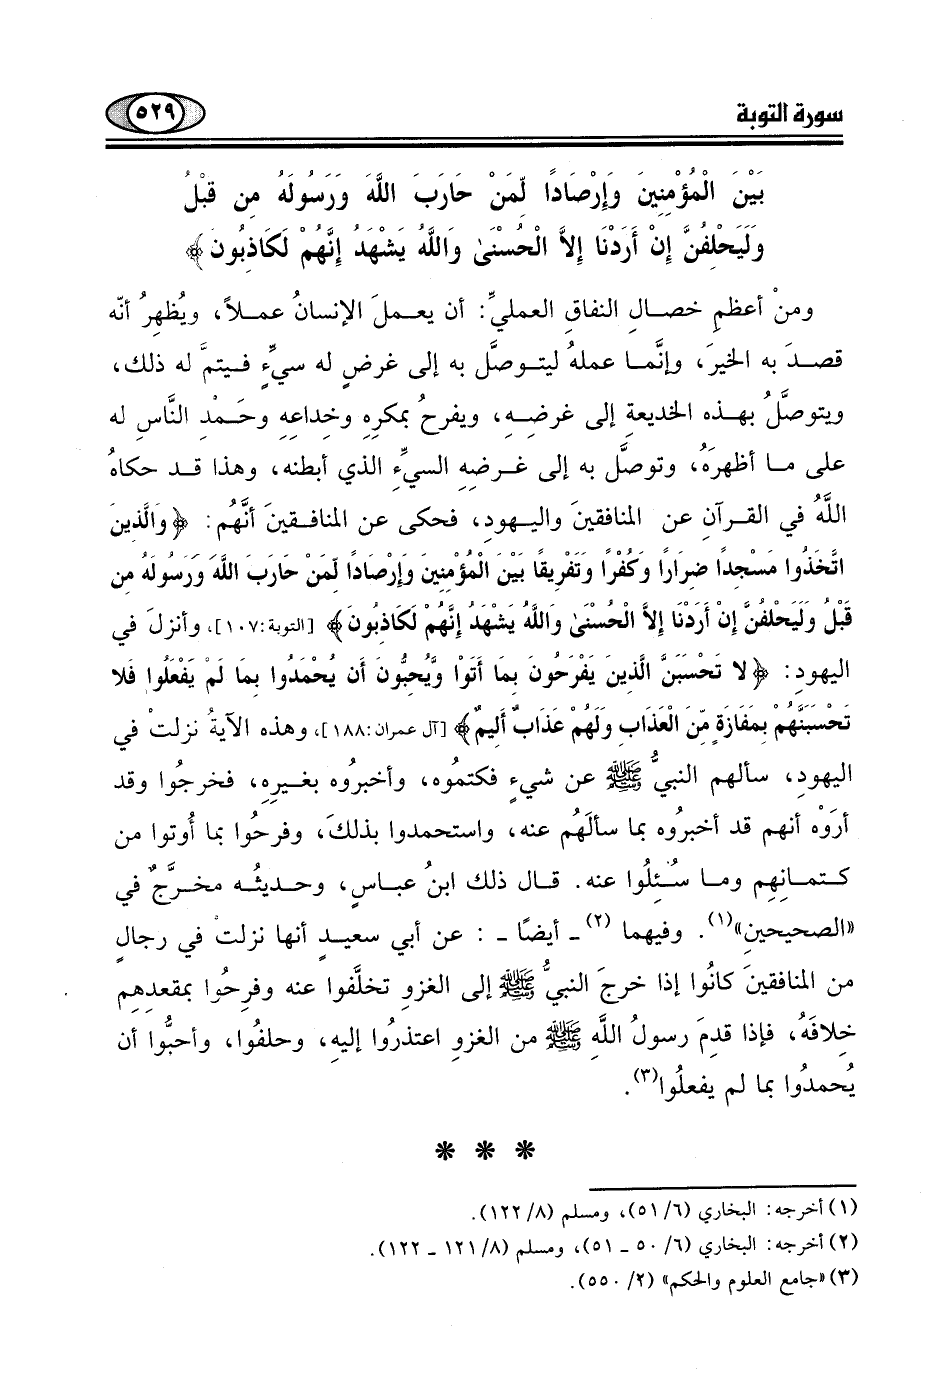 سورة التوبة ٥٢٩
بَيْنَ الْمُؤْمِنِينَ وَإِرْصَادًا لِّمَنْ حَارَبَ اللَّهَ وَرَسُولَهُ مِن قَبْلُ
وَلَيَحْلِفُنَّ إِنْ أَرَدْنَا إِلاَّ الْحُسْنَىٰ وَاللَّهُ يَشْهَدُ إِنَّهُمْ لَكَاذِبُونَ ﴾
ومنْ أعظمِ خصالِ النفاقِ العمليِّ: أن يعملَ الإنسانُ عملاً، ويُظهِرُ أنّه
قصدَ به الخيرَ، وإنَّما عملهُ ليتوصَّل به إلى غرضٍ له سيِّءٍ فيتمَّ له ذلك،
ويتوصَّلُ بهذه الخديعةِ إلى غرضِهِ، ويفرحُ بمكرِهِ وخداعِهِ وحَمْدِ النَّاس له
على ما أظهرَهُ، وتوصَّل به إلى غرضِهِ السيِّءِ الذي أبطنه، وهذا قد حكاهُ
اللَّهُ في القرآنِ عن المنافقينَ واليهودِ، فحكى عن المنافقينَ أنَّهُم: ﴿ وَالَّذِينَ
اتَّخَذُوا مَسْجِدًا ضِرَارًا وَكُفْرًا وَتَفْرِيقًا بَيْنَ الْمُؤْمِنِينَ وَإِرْصَادًا لِّمَنْ حَارَبَ اللَّهَ وَرَسُولَهُ مِن
قَبْلُ وَلَيَحْلِفُنَّ إِنْ أَرَدْنَا إِلاَّ الْحُسْنَىٰ وَاللَّهُ يَشْهَدُ إِنَّهُمْ لَكَاذِبُونَ ﴾ [التوبة: ١٠٧]، وأنزلَ في
اليهودِ: ﴿ لا تَحْسَبَنَّ الَّذِينَ يَفْرَحُونَ بِمَا أَتَوْا وَّيُحِبُّونَ أَن يُحْمَدُوا بِمَا لَمْ يَفْعَلُوا فَلا
تَحْسَبَنَّهُمْ بِمَفَازَةٍ مِّنَ الْعَذَابِ وَلَهُمْ عَذَابٌ أَلِيمٌ ﴾ [آل عمران: ١٨٨]، وهذه الآيةُ نزلتْ في
اليهودِ، سألهم النبيُّ ﷺ عن شيءٍ فكتمُوه، وأخبرُوه بغيرِهِ، فخرجُوا وقد
أرَوْه أنهم قد أخبرُوه بما سألَهُم عنه، واستحمدوا بذلكَ، وفرحُوا بما أُوتوا من
كتمانِهِم وما سُئِلُوا عنه. قال ذلك ابنُ عباسٍ، وحديثُه مخرَّجٌ في
«الصحيحينِ»(١). وفيهما (٢) ـ أيضًا ـ : عن أبي سعيدٍ أنها نزلتْ في رجالٍ
من المنافقينَ كانُوا إذا خرجَ النبيُّ ﷺ إلى الغزوِ تخلَّفوا عنه وفرِحُوا بمقعدِهِم
خلافَهُ، فإذا قدِمَ رسولُ اللَّهِ ﷺ من الغزوِ اعتذرُوا إليهِ، وحلفُوا، وأحبُّوا أن
يُحمدُوا بما لم يفعلُوا(٣).
* * *
(١) أخرجه: البخاري (٦/ ٥١)، ومسلم (٨/ ١٢٢).
(٢) أخرجه: البخاري (٦/ ٥٠ ـ ٥١)، ومسلم (٨/ ١٢١ ـ ١٢٢).
(٣) «جامع العلوم والحكم» (٢/ ٥٥٠).